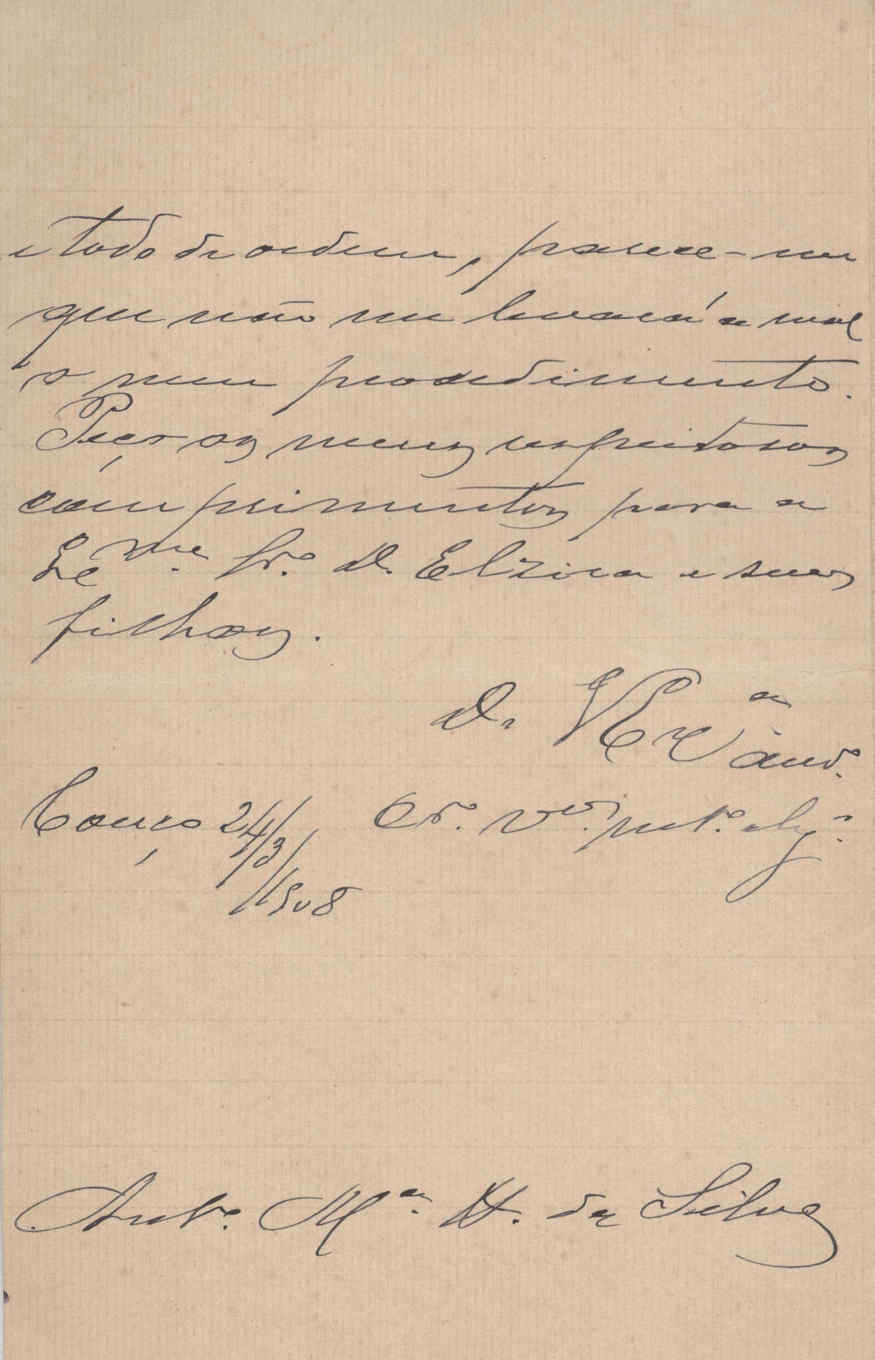 e todo de ordem, parece-me
que não me levará a mal
o meu procedimento.
Peço os meus respeitosos
comprimentos para a
Exᵐᵃ. Srª. D. Elzira e suas
filhas.
De V Exᶜⁱᵃ
Couço 24/3/1908 Cr. Vᵒʳ. mtº. obgº.
Antº. Mª. H. da Silva